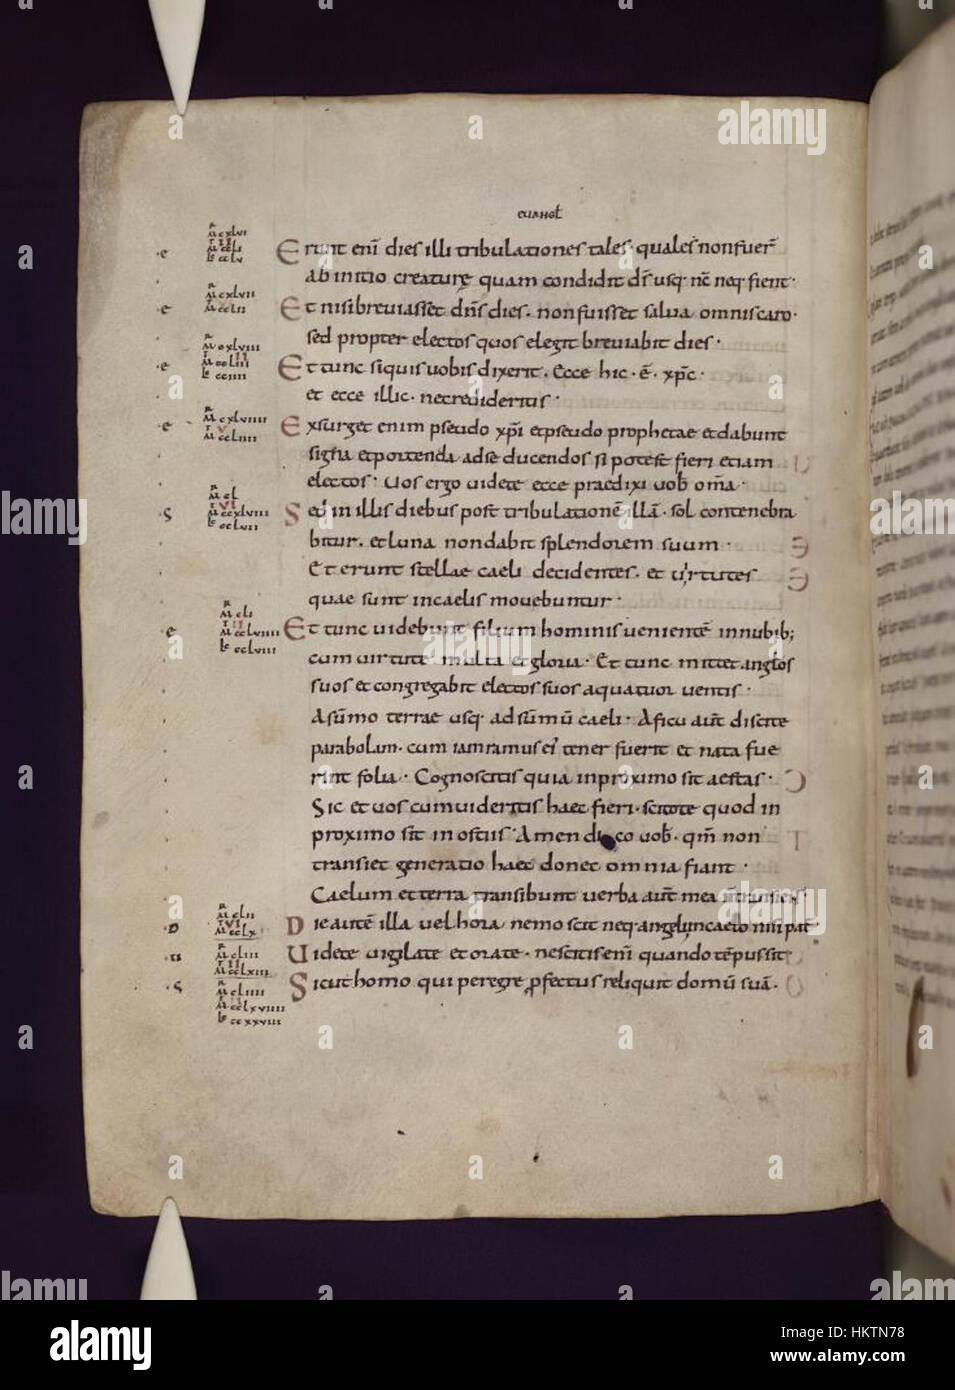 euangł
Erunt enī dies illi tribulationes tales· quales nonfuer̄
ab initio creaturę quam condidit dš usq· nc̄ neq· fient·
Et nisi breviasset dn̄s dies· nonfuisset salva omniscaro·
sed propter electos quos elegit breviabit dies·
Et tunc siquisuobis dixerit· Ecce hic· ē· xp̄c·
et ecce illic· necredideritis·
Exsurgent enim pseudo xp̄i etpseudo prophetae etdabunt
signa etportenda adse ducendos si potest fieri etiam
electos· Uos ergo uidete ecce praedixi uob̄ om̄a·
Sed in illis diebus post tribulationē illā· sol contenebra
bitur· etluna nondabit splendorem suum·
Et erunt stellae caeli decidentes· et uirtutes
quae sunt incaelis movebuntur·
Et tunc uidebunt filium hominis uenientē innubib;
cum uirtute multa etgloria· Et tunc mittet anglos
suos et congregabit electos suos aquatuor uentis·
Asūmo terrae usq· adsūmū caeli· Aficu aūt discite
parabolam· cum iamramus ei tener fuerit et nata fue
rint folia· Cognoscitis quia inproximo sit aestas·
Sic et uos cumuideritis haec fieri· scitote quod in
proximo sit in ostiis· Amen dico uob̄· qm̄ non
transiet generatio haec donec omnia fiant·
Caelum etterra transibunt uerba aūt mea
Die autē illa uel hora nemo scit neq· angeli incaelo nisi pat̄
Uidete uigilate et orate· nescitis enī quando tēpus sit·
Sicut homo qui peregre profectus reliquit domū suā·
alamy
Image ID: HKTN78
www.alamy.com